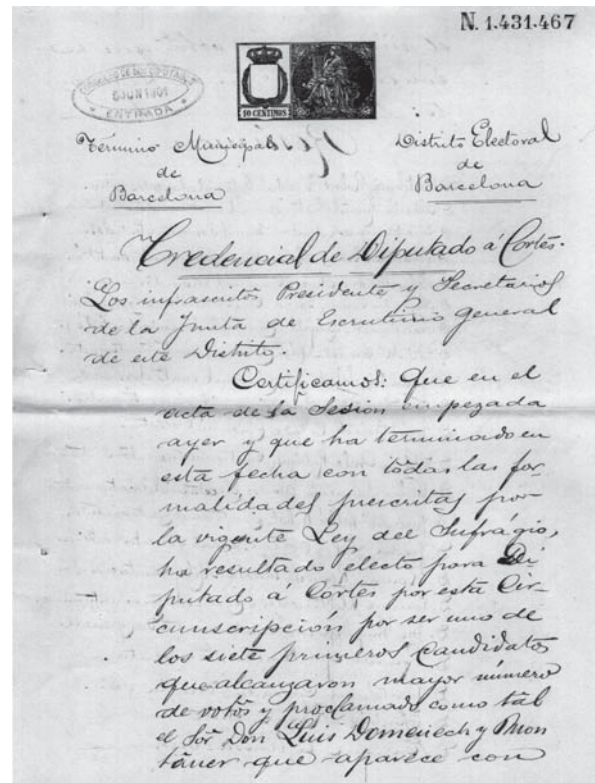 N. 1.431.467
CONGRESO DE LOS DIPUTADOS
5 JUN 1901
ENTRADA
50 CENTIMOS
Término Municipal
de
Barcelona
Distrito Electoral
de
Barcelona
Credencial de Diputado á Cortes.
Los infrascritos, Presidente y Secretarios
de la Junta de Escrutinio general
de este Distrito.
Certificamos: Que en el
acta de la Sesión empezada
ayer y que ha terminado en
esta fecha con todas las for-
malidades prescritas por
la vigente Ley del Sufrágio,
ha resultado electo para Di
putado á Cortes por esta Cir-
cunscripción por ser uno de
los siete primeros Candidatos
que alcanzaron mayor número
de votos y proclamado como tál
el Sór Don Luis Domenech y Mon
táner que aparece con